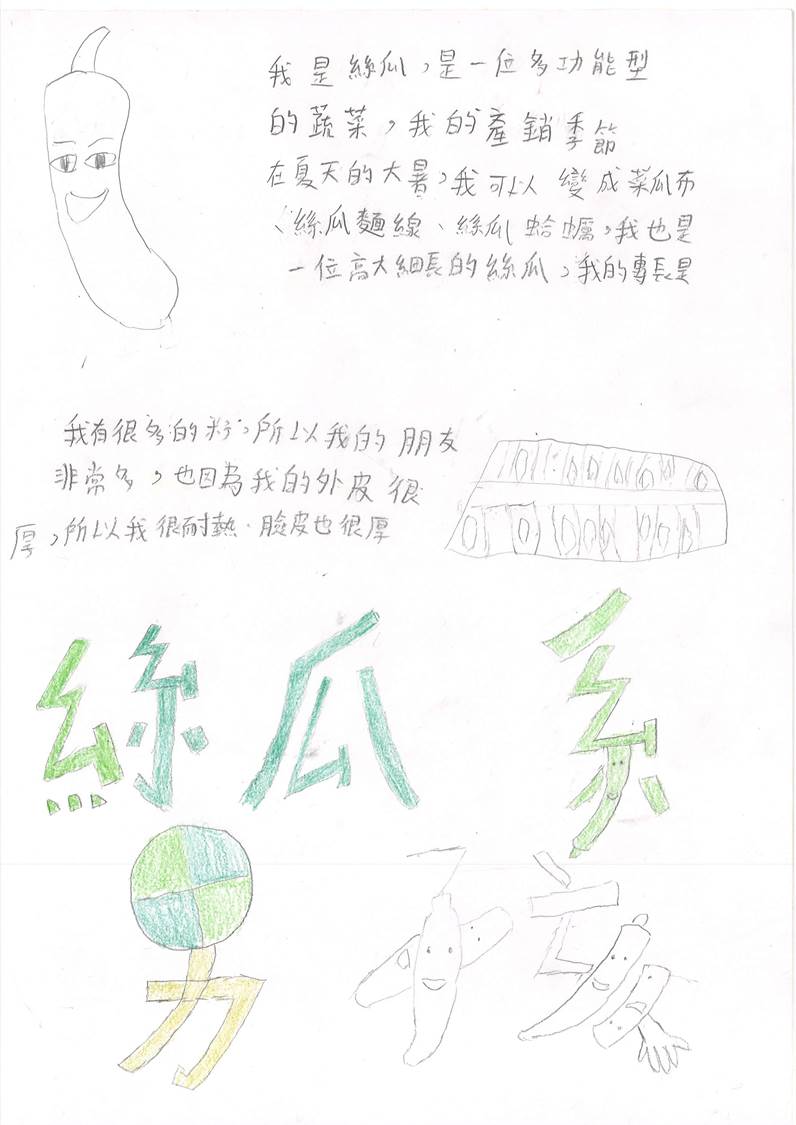 我是絲瓜，是一位多功能型
的蔬菜，我的產銷季節
在夏天的大暑，我可以變成菜瓜布
、絲瓜麵線、絲瓜蛤蠣，我也是
一位高大細長的絲瓜，我的專長是
我有很多的籽，所以我的朋友
非常多，也因為我的外皮很
厚，所以我很耐熱，臉皮也很厚
絲瓜系
男孩